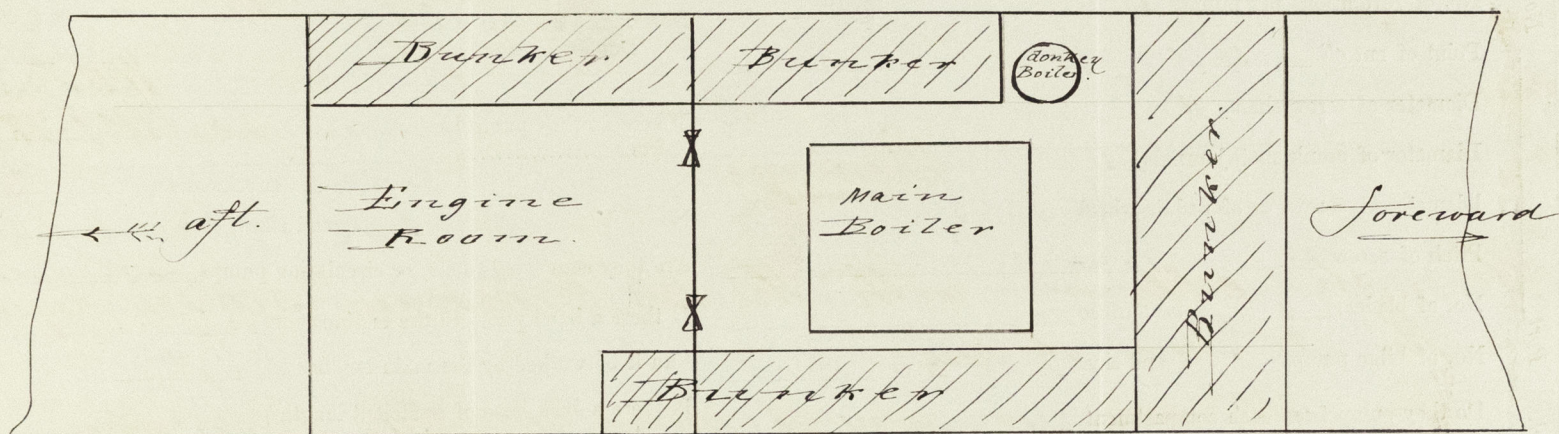 Bunker
Bunker
donkey
Boiler.
Engine
Room.
Main
Boiler
aft.
Bunker.
foreward
Bunker